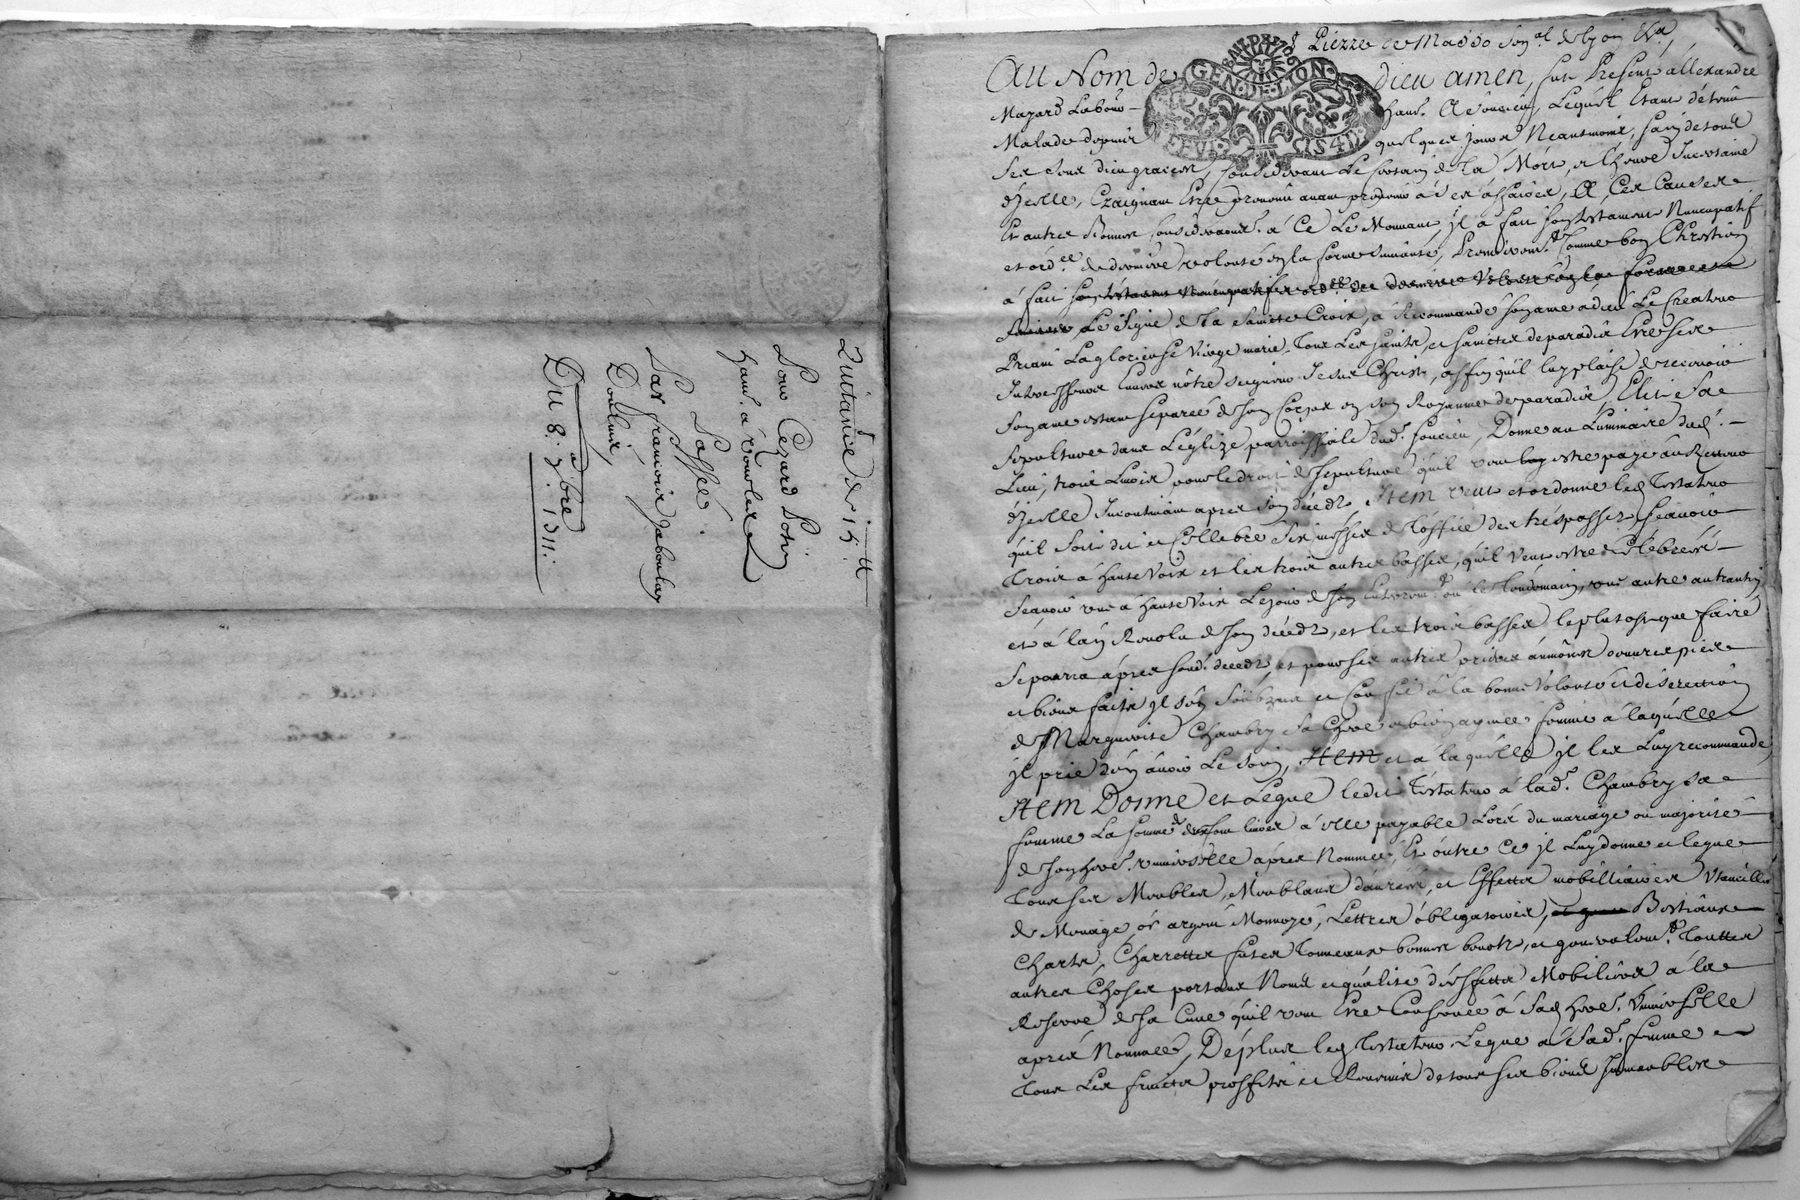 Quitance de 15 H
Pour Cezard
habt. à
Passée
Par francois Jaboulay
Du 8. 7bre 1711.
Pierre
GEN. DE LYON
Au Nom de dieu amen, fut Present allexandre
Mazard Labour habt. A Soucieu, Lequel Etant détenu
Malade depuis quelques jours Neantmoins, sain de tous
ses sens dieu graces, considerant Le certain de La Mort, et L'heure Incertaine
d'jcelle, Craignant Etre prevenu avant pourvoir à ses affaires, A Ces Causes
Et autres Bonnes considerations à Ce Le Mouvant, jl à fait son testament Nuncupatif
et ordce. de derniere volonté en la forme suivante, Premierement Comme bon Chrestien
à fait son testament Nuncupatif et ordce de derniere Volonté en la forme
suivante, Le Signe de La Saincte Croix, à Recommandé son ame à dieu Le Createur
Priant La glorieuse Vierge marie, Tous Les saints, et sainctes de paradis Etre ses
Intercesseurs Envers nôtre seigneur Jesus Christ, affin qu'il luy plaise de recevoir
son ame estant separée de son Corps en son Royaume de paradis, Elit sa
sepulture dans L'église parroissiale dud. soucieu, Donne au Luminaire dud.
Lieu, trois Livres pour le droit de sepulture qu'il veut estre payé au Recteur
d'jcelle Incontinant apres son décedz, Item veut et ordonne led Testateur
qu'il soit dit et Cellebré six messes de L'office des tréspassez, scavoir
Trois à haute Voix et les trois autres basses, qu'il veut estre Célébrées
scavoir une à haute Voix Le jour de son Enterremt. ou le Lendemain, une autre
et à L'an Revolu de son décedz, et les trois basses le plutost que faire
se pourra après sond. decedz, et pour ses autres prieres aumônes oeuvres pies
et biens faits jl s'en à la bonne Volonté et discretion
de Marguerite Chambry sa Chere et bien aymée femme à laquelle
jl prie d'en avoir Le soin, Item et à laquelle jl les Luy recommande,
Item Donne et Legue ledit Testateur à lad. Chambry sa
femme La somme de livres à elle payable Lors du mariage ou majorité
de son here. universelle après Nommée, Et outre Ce jl Luy donne et legue
Tous ses Meubles, Meublans danrées, et Effetts mobilliaires Utancilles
de Menage, or argent Monnoyé, Lettres obligatoires, Bestiaux
Chars, Charrettes futes Tonneaux bennes benots, et generalemt. Touttes
autres Choses portant Nom et qualité d'éffetts Mobiliers à la
Reserve de sa Cuve qu'il veut Etre Conservée à Sad here. Universelle
aprés Nommée, Déplus led Testateur Legue à sad. femme
Tous Les fruits proffits et Revenus de tous ses biens Immeubles